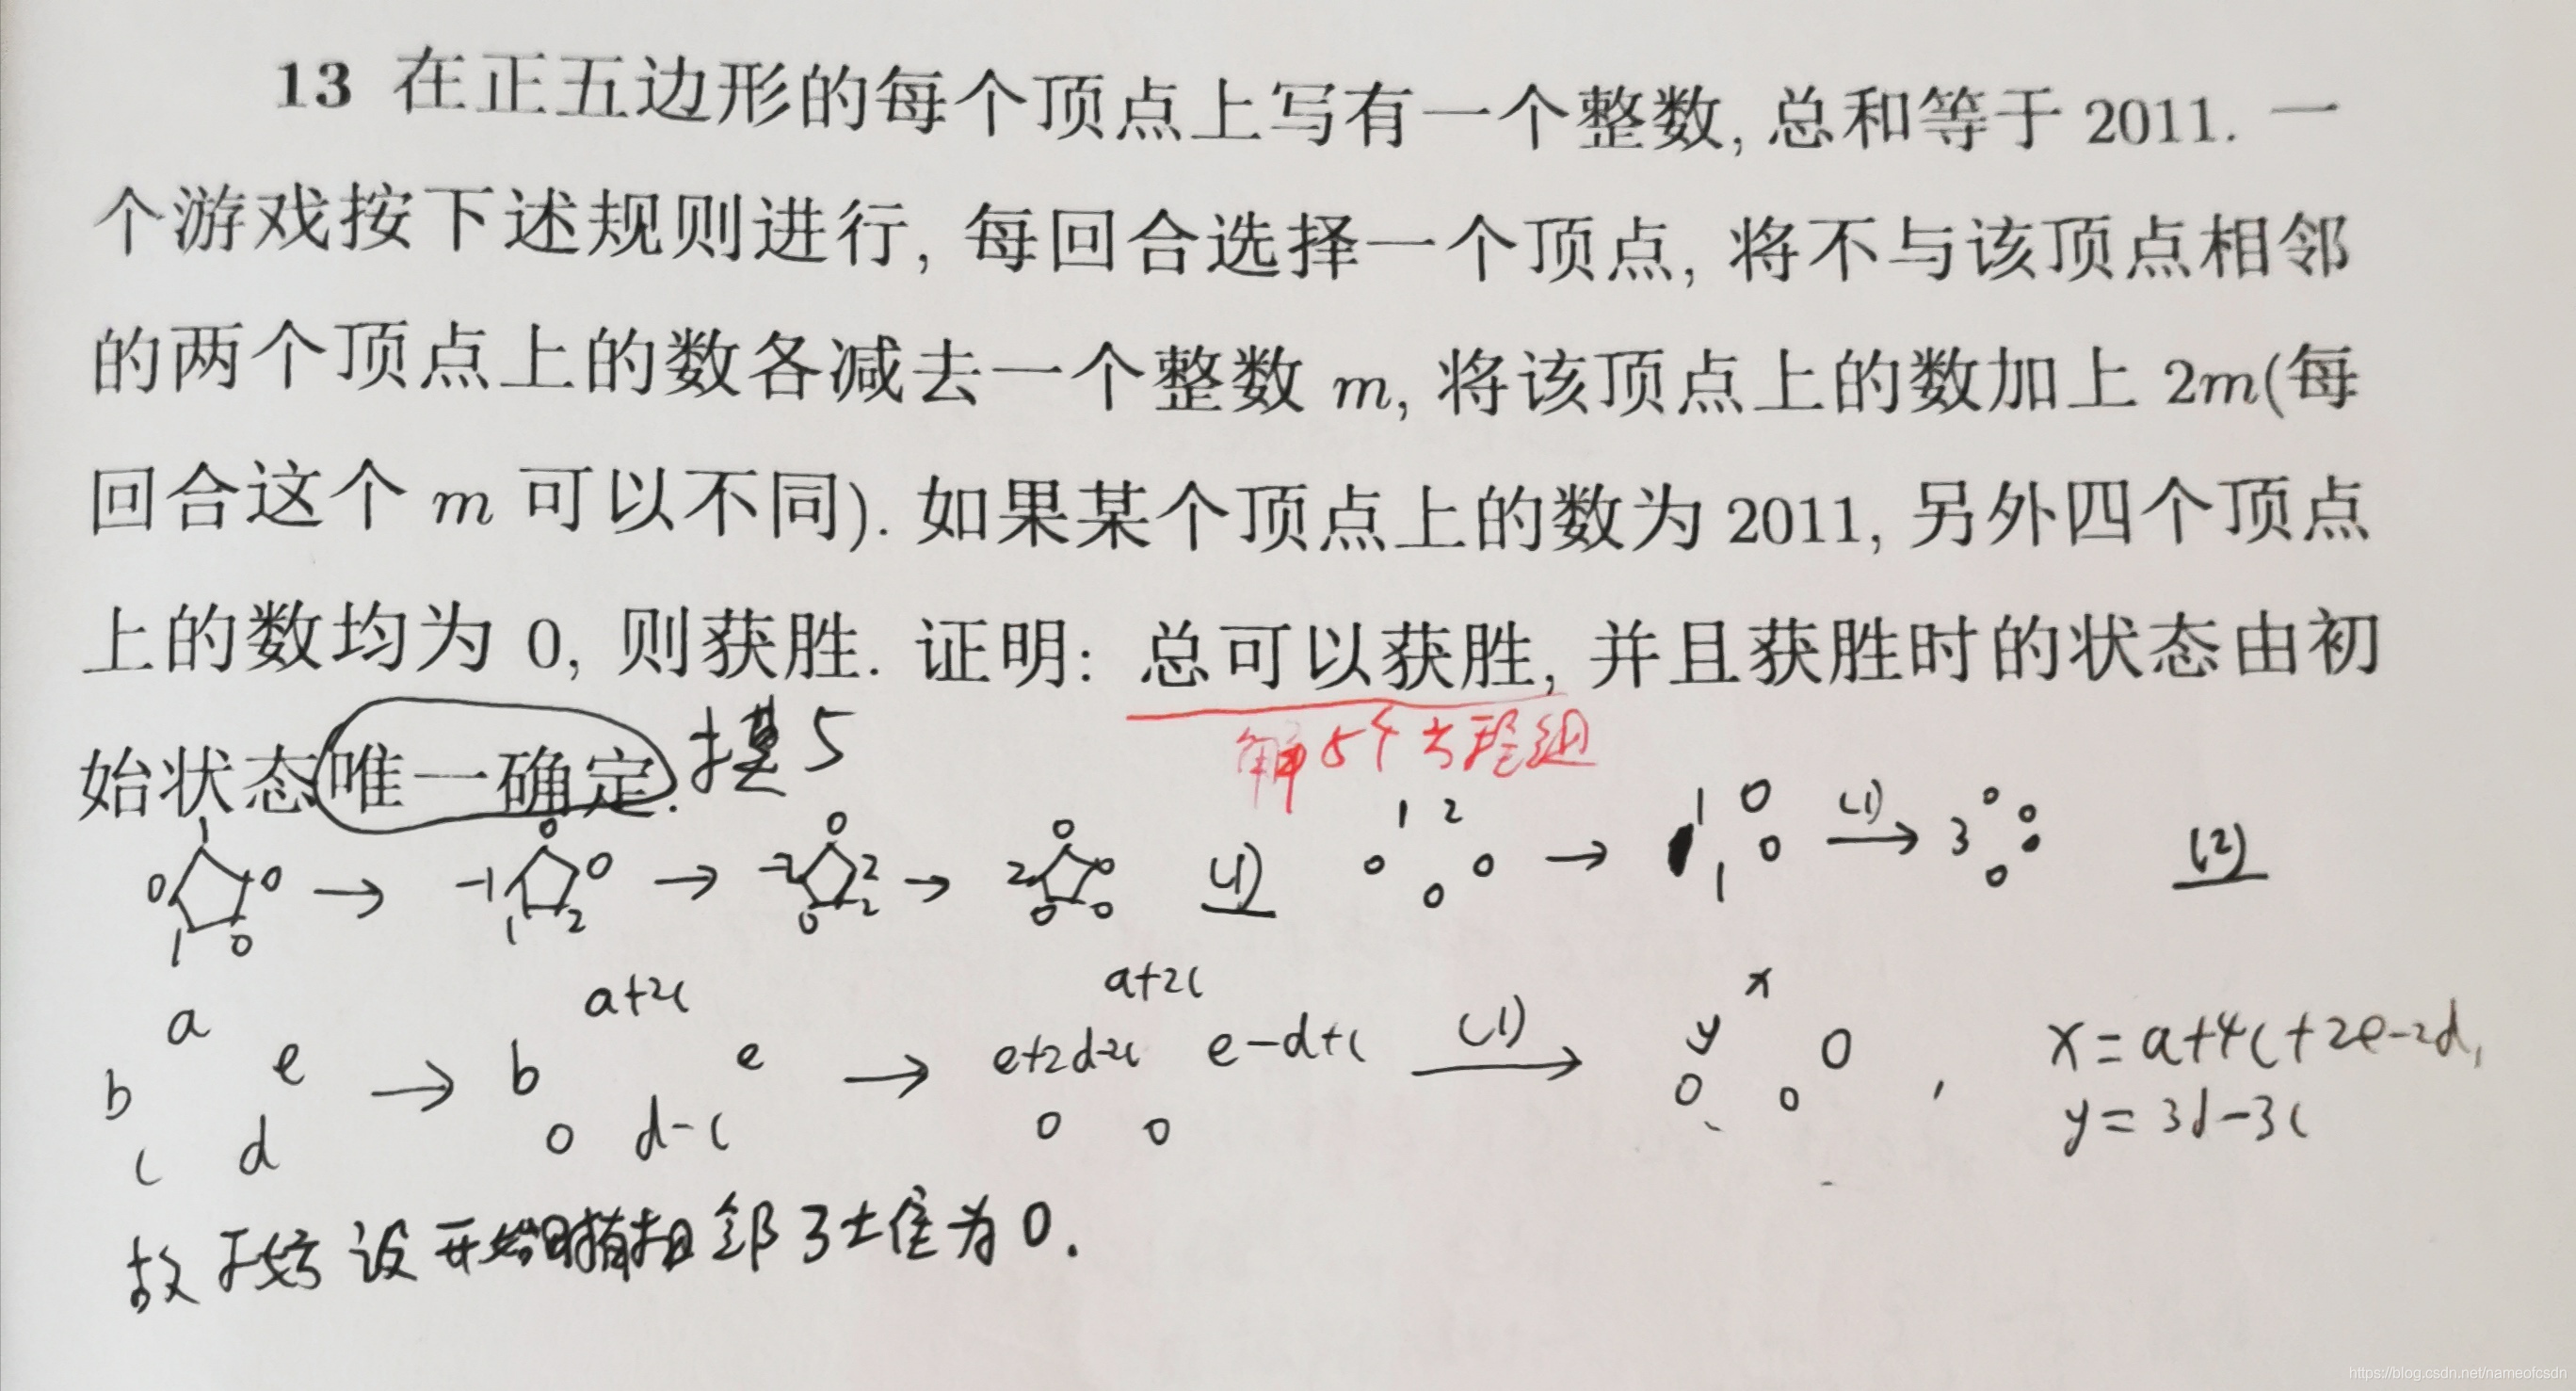 13 在正五边形的每个顶点上写有一个整数, 总和等于 2011. 一
个游戏按下述规则进行, 每回合选择一个顶点, 将不与该顶点相邻
的两个顶点上的数各减去一个整数 m, 将该顶点上的数加上 2m(每
回合这个 m 可以不同). 如果某个顶点上的数为 2011, 另外四个顶点
上的数均为 0, 则获胜. 证明: 总可以获胜, 并且获胜时的状态由初
始状态唯一确定. 模 5
解 5个方程组
1 0 0 1 0 → 0 -1 0 1 2 → 0 -2 2 0 2 → 0 2 0 0 0 (1)
1 2 0 0 0 → 1 0 0 1 (1) → 3 0 0 0 (2)
a b e c d → a+2c b e 0 d-c → a+2c e+2d-2c e-d+c 0 0 (1) → x y 0 0 0 , x=a+4c+2e-2d,
y=3d-3c
故不妨设开始时有相邻3士隹为0.
https://blog.csdn.net/nameofcsdn